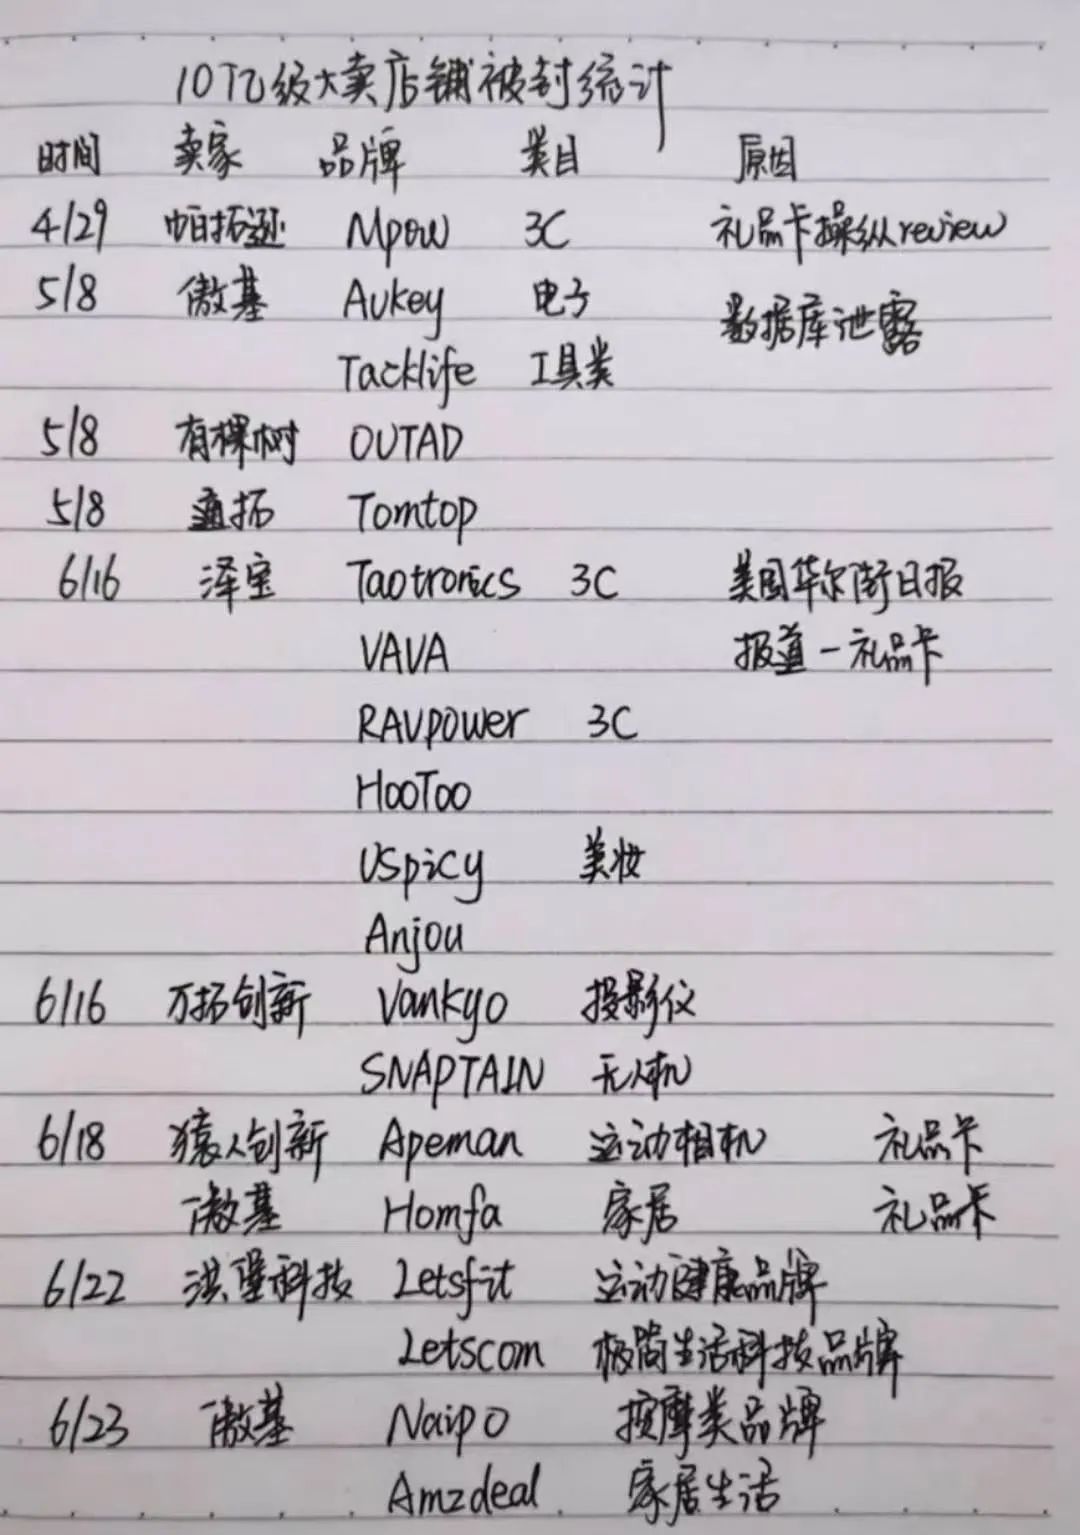 10亿级大卖店铺被封统计
时间 卖家 品牌 类目 原因
4/29 帕拓逊 Mpow 3C 礼品卡操纵review
5/8 傲基 Aukey 电子 数据库泄露
Tacklife 工具类
5/8 有棵树 OUTAD
5/8 通拓 Tomtop
6/16 泽宝 Taotronics 3C 美国华尔街日报
VAVA 报道-礼品卡
RAVpower 3C
HooToo
USpicy 美妆
Anjou
6/16 万拓创新 Vankyo 投影仪
SNAPTAIN 无人机
6/18 猿人创新 Apeman 运动相机 礼品卡
傲基 Homfa 家居 礼品卡
6/22 洪堡科技 Letsfit 运动健康品牌
Letscom 极简生活科技品牌
6/23 傲基 Naipo 按摩类品牌
Amzdeal 家居生活